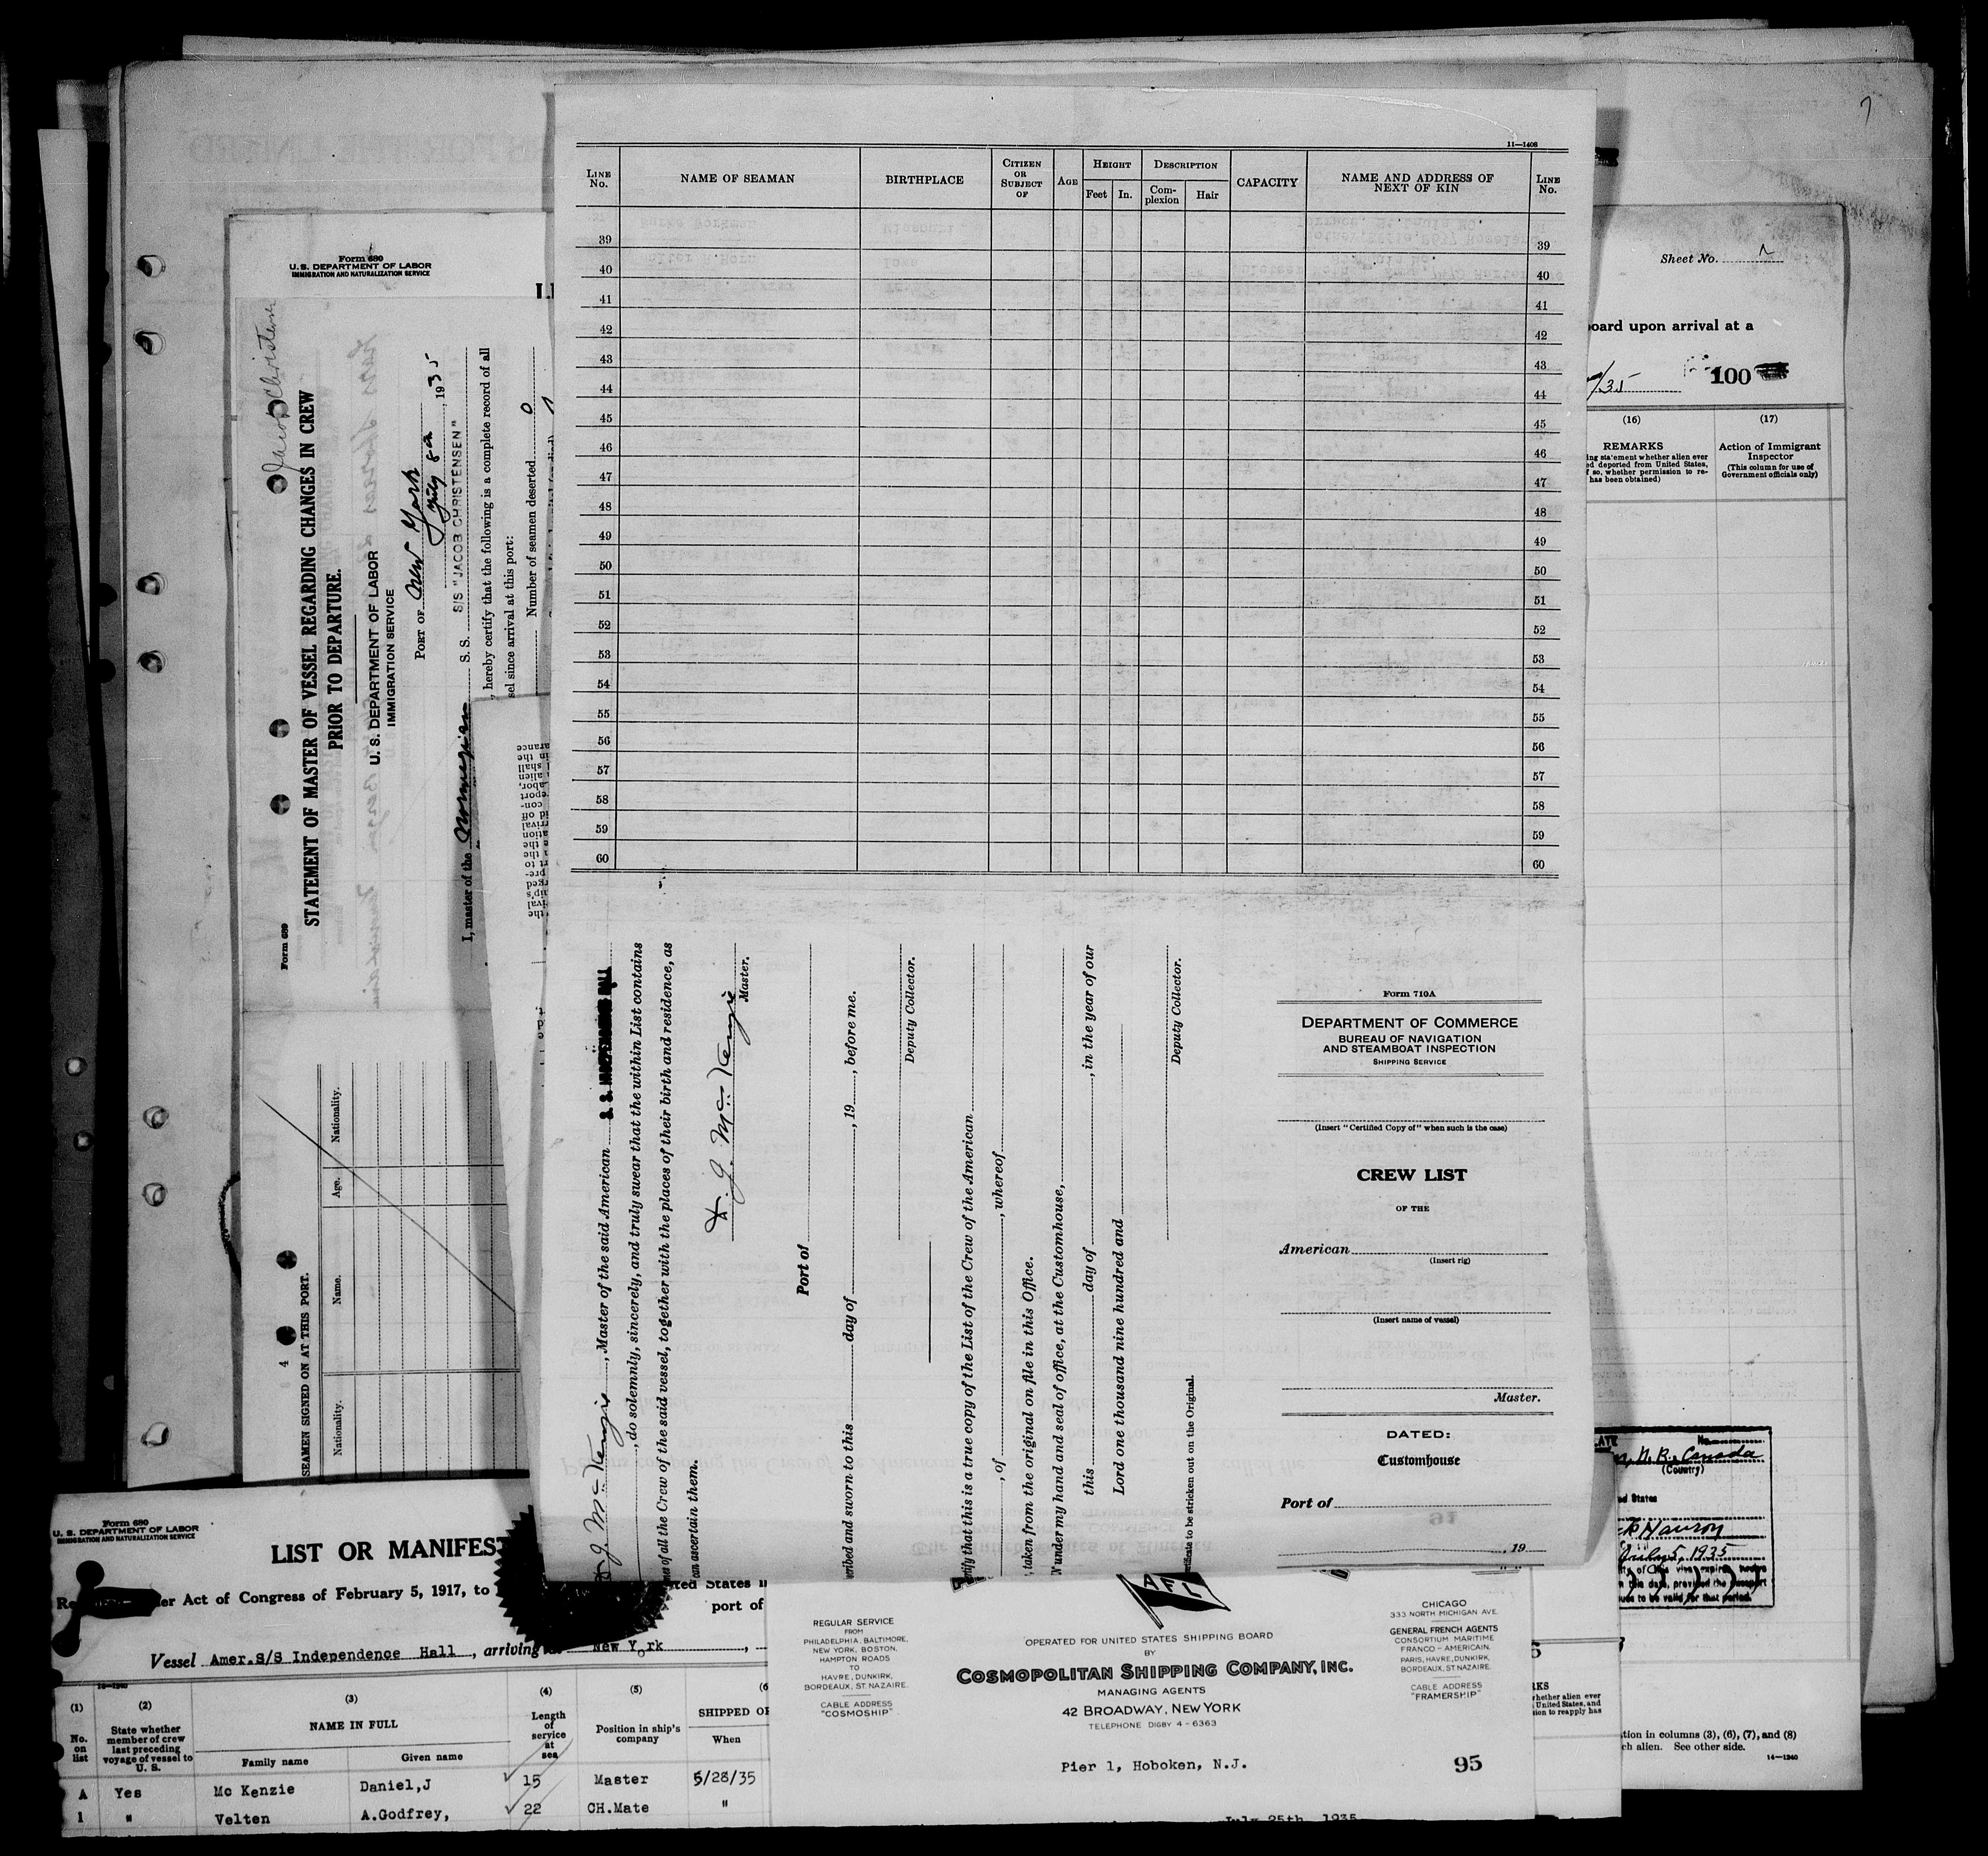 11—1408
LINE No.
NAME OF SEAMAN
BIRTHPLACE
CITIZEN OR SUBJECT OF
AGE
HEIGHT
Feet
In.
DESCRIPTION
Complexion
Hair
CAPACITY
NAME AND ADDRESS OF NEXT OF KIN
LINE No.
39 39
40 40
41 41
42 42
43 43
44 44
45 45
46 46
47 47
48 48
49 49
50 50
51 51
52 52
53 53
54 54
55 55
56 56
57 57
58 58
59 59
60 60
D. J. McKenzie, Master of the said American S. S. INDEPENDENCE HALL
, do solemnly, sincerely, and truly swear that the within List contains
of all the Crew of the said vessel, together with the places of their birth and residence, as
can ascertain them.
D. J. McKenzie
Master.
Port of
ribed and sworn to this day of , 19 , before me.
Deputy Collector.
tify that this is a true copy of the List of the Crew of the American
, of , whereof
taken from the original on file in this Office.
under my hand and seal of office, at the Customhouse,
this day of , in the year of our
Lord one thousand nine hundred and
Deputy Collector.
tificate to be stricken out on the Original.
Form 710A
DEPARTMENT OF COMMERCE
BUREAU OF NAVIGATION
AND STEAMBOAT INSPECTION
SHIPPING SERVICE
(Insert "Certified Copy of" when such is the case)
CREW LIST
OF THE
American
(Insert rig)
(Insert name of vessel)
Master.
DATED:
Customhouse
Port of
, 19
Form 680
U. S. DEPARTMENT OF LABOR
IMMIGRATION AND NATURALIZATION SERVICE
LI
Jacob Christensen
Form 689
STATEMENT OF MASTER OF VESSEL REGARDING CHANGES IN CREW
PRIOR TO DEPARTURE.
U. S. DEPARTMENT OF LABOR
IMMIGRATION SERVICE
PORT OF New York
July 8th, 1935
I, master of the Norwegian S. S. S/S "JACOB CHRISTENSEN"
, hereby certify that the following is a complete record of all
sel since arrival at this port:
Number of seamen deserted 0
4
SEAMEN SIGNED ON AT THIS PORT.
Nationality. Name. Age. Nationality.
Sheet No.
board upon arrival at a
/35
100
(16)
REMARKS
ing statement whether alien ever
ed deported from United States,
f so, whether permission to re-
has been obtained)
(17)
Action of Immigrant Inspector
(This column for use of Government officials only)
No.
N. B., Canada
(Country)
ed States
Hanson
July 5, 1935
tion in columns (3), (6), (7), and (8)
ch alien. See other side.
14—1240
Form 680
U. S. DEPARTMENT OF LABOR
IMMIGRATION AND NATURALIZATION SERVICE
LIST OR MANIFES
er Act of Congress of February 5, 1917, to
ited States
port of
Vessel Amer.S/S Independence Hall, arriving at New York,
14—1240
(1)
No. on list
(2)
State whether member of crew last preceding voyage of vessel to U. S.
(3)
NAME IN FULL
Family name
Given name
(4)
Length of service at sea
(5)
Position in ship's company
(6
SHIPPED OR
When
A Yes Mc Kenzie Daniel,J 15 Master 5/28/35
1 " Velten A.Godfrey, 22 CH.Mate "
AFL
REGULAR SERVICE
FROM
PHILADELPHIA, BALTIMORE,
NEW YORK, BOSTON,
HAMPTON ROADS
TO
HAVRE, DUNKIRK,
BORDEAUX, ST. NAZAIRE.
CABLE ADDRESS
"COSMOSHIP"
OPERATED FOR UNITED STATES SHIPPING BOARD
BY
COSMOPOLITAN SHIPPING COMPANY, INC.
MANAGING AGENTS
42 BROADWAY, NEW YORK
TELEPHONE DIGBY 4-6363
CHICAGO
333 NORTH MICHIGAN AVE.
GENERAL FRENCH AGENTS
CONSORTIUM MARITIME
FRANCO-AMERICAIN,
PARIS, HAVRE, DUNKIRK,
BORDEAUX, ST NAZAIRE.
CABLE ADDRESS
"FRAMERSHIP"
Pier 1, Hoboken, N.J.
95
July 25th, 1935
RKS
whether alien ever
United States, and
sion to reapply has